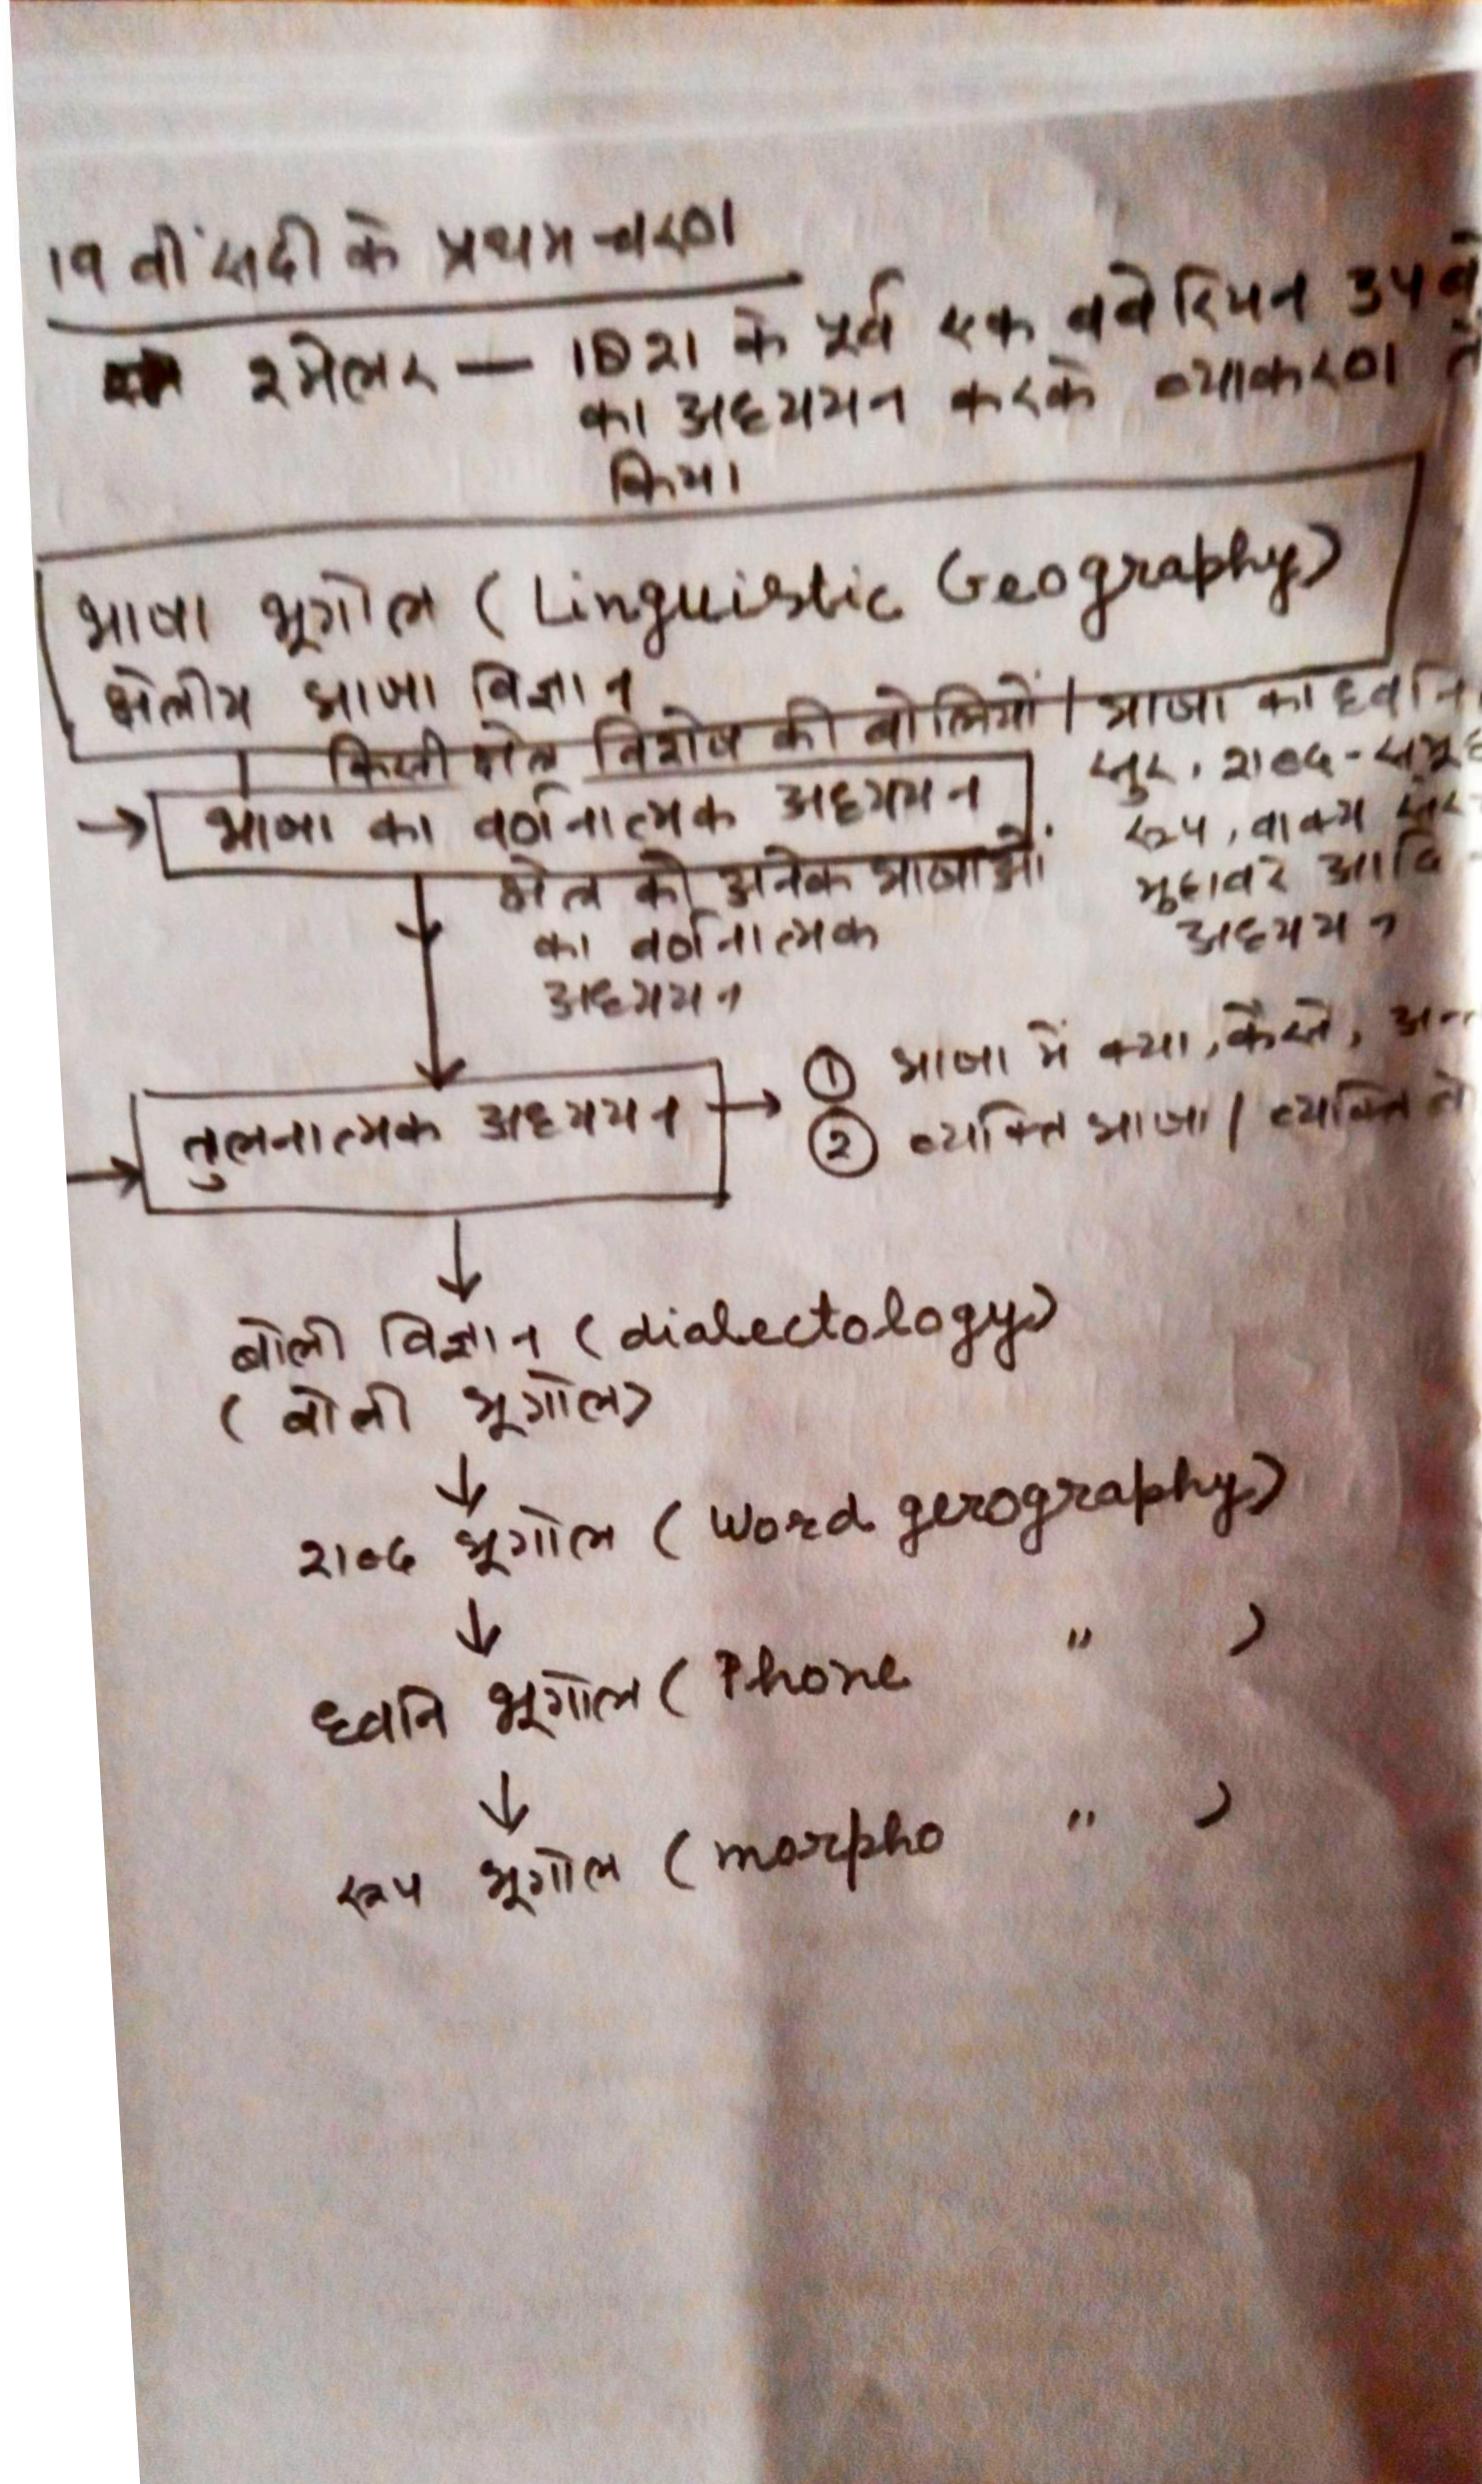 19 वीं सदी के प्रथम चरण
श्मेलर — 1821 के पूर्व एक बवेरियन उप
का अध्ययन करके व्याकरण
किया
भाषा भूगोल (Linguistic Geography)
क्षेत्रीय भाषा विज्ञान
किसी क्षेत्र विशेष की बोलियों / भाषा का ध्वनि
सुर, शब्द-समूह
रूप, वाक्य
मुहावरे आदि
अध्ययन
→ भाषा का वर्णनात्मक अध्ययन
क्षेत्र की अनेक भाषाओं
का वर्णनात्मक
अध्ययन
→ तुलनात्मक अध्ययन →
① भाषा में क्या, कैसे,
② व्यक्ति भाषा / व्यक्ति
↓
बोली विज्ञान (dialectology)
(बोली भूगोल)
↓
शब्द भूगोल (Word gerography)
↓
ध्वनि भूगोल (Phone " )
↓
रूप भूगोल (morpho " )